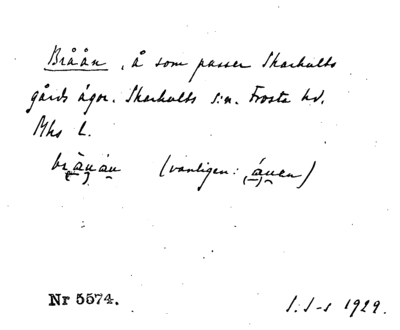 Bråån, å som passer Skarhults
gårds ägor. Skarhults s:n. Frosta hd.
Mhs L.
(vanligen:
Nr 5574.
1929.